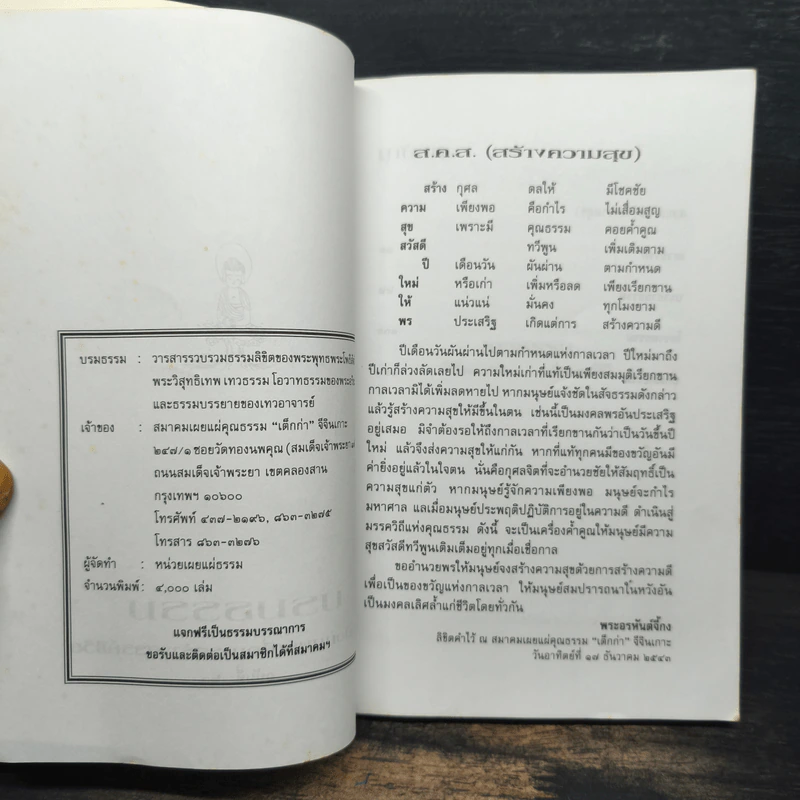 บรมธรรม : วารสารรวบรวมธรรมลิขิตของพระพุทธพระโพธิสัตว์
พระวิสุทธิเทพ เทวธรรม โอวาทธรรมของพระอรหันต์
และธรรมบรรยายของเทวอาจารย์
เจ้าของ : สมาคมเผยแผ่คุณธรรม “เต็กก่า” จีจินเกาะ
๒๔๗/๑ ซอยวัดทองนพคุณ (สมเด็จเจ้าพระยา
ถนนสมเด็จเจ้าพระยา เขตคลองสาน
กรุงเทพฯ ๑๐๖๐๐
โทรศัพท์ ๔๓๗-๒๑๙๖, ๘๖๓-๓๒๗๕
โทรสาร ๘๖๓-๓๒๗๖
ผู้จัดทำ : หน่วยเผยแผ่ธรรม
จำนวนพิมพ์ : ๔,๐๐๐ เล่ม
แจกฟรีเป็นธรรมบรรณาการ
ขอรับและติดต่อเป็นสมาชิกได้ที่สมาคมฯ
ส.ค.ส. (สร้างความสุข)
สร้าง กุศล ดลให้ มีโชคชัย
ความ เพียงพอ คือกำไร ไม่เสื่อมสูญ
สุข เพราะมี คุณธรรม คอยค้ำคูณ
สวัสดี ทวีพูน เพิ่มเติมตาม
ปี เดือนวัน ผันผ่าน ตามกำหนด
ใหม่ หรือเก่า เพิ่มหรือลด เพียงเรียกขาน
ให้ แน่วแน่ มั่นคง ทุกโมงยาม
พร ประเสริฐ เกิดแต่การ สร้างความดี
ปีเดือนวันผันผ่านไปตามกำหนดแห่งกาลเวลา ปีใหม่มาถึง
ปีเก่าก็ล่วงลัดเลยไป ความใหม่เก่าที่แท้เป็นเพียงสมมุติเรียกขาน
กาลเวลามิได้เพิ่มลดหายไป หากมนุษย์แจ้งชัดในสัจธรรมดังกล่าว
แล้วรู้สร้างความสุขให้มีขึ้นในตน เช่นนี้เป็นมงคลพรอันประเสริฐ
อยู่เสมอ มิจำต้องรอให้ถึงกาลเวลาที่เรียกขานกันว่าเป็นวันขึ้นปี
ใหม่ แล้วจึงส่งความสุขให้แก่กัน หากที่แท้ทุกคนมีของขวัญอันมี
ค่ายิ่งอยู่แล้วในใจตน นั่นคือกุศลจิตที่จะอำนวยชัยให้สัมฤทธิ์เป็น
ความสุขแก่ตัว หากมนุษย์รู้จักความเพียงพอ มนุษย์จะกำไร
มหาศาล แลเมื่อมนุษย์ประพฤติปฏิบัติการอยู่ในความดี ดำเนินสู่
มรรควิถีแห่งคุณธรรม ดังนี้ จะเป็นเครื่องค้ำคูณให้มนุษย์มีความ
สุขสวัสดีทวีพูนเติมเต็มอยู่ทุกเมื่อเชื่อกาล
ขออำนวยพรให้มนุษย์จงสร้างความสุขด้วยการสร้างความดี
เพื่อเป็นของขวัญแห่งกาลเวลา ให้มนุษย์สมปรารถนาในหวังอัน
เป็นมงคลเลิศล้ำแก่ชีวิตโดยทั่วกัน
พระอรหันต์จี้กง
ลิขิตคำไว้ ณ สมาคมเผยแผ่คุณธรรม “เต็กก่า” จีจินเกาะ
วันอาทิตย์ที่ ๑๗ ธันวาคม ๒๕๔๓